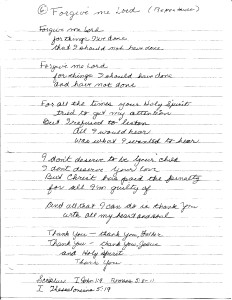 ⑥ Forgive me Lord (Repentance)
Forgive me Lord
for things I've done
that I should not have done
Forgive me Lord
for things I should have done
and have not done
For all the times your Holy Spirit
tried to get my attention
But I refused to listen
All I would hear
was what I wanted to hear
I don't deserve to be your child
I don't deserve your love
But Christ has paid the penalty
for all I'm guilty of
And all that I can do is thank you
with all my heart and soul
Thank You - thank you, Father
Thank You - thank you, Jesus
and Holy Spirit
Thank You
Scripture I John 1:9 Romans 5:8-11
I Thessalonians 5:19